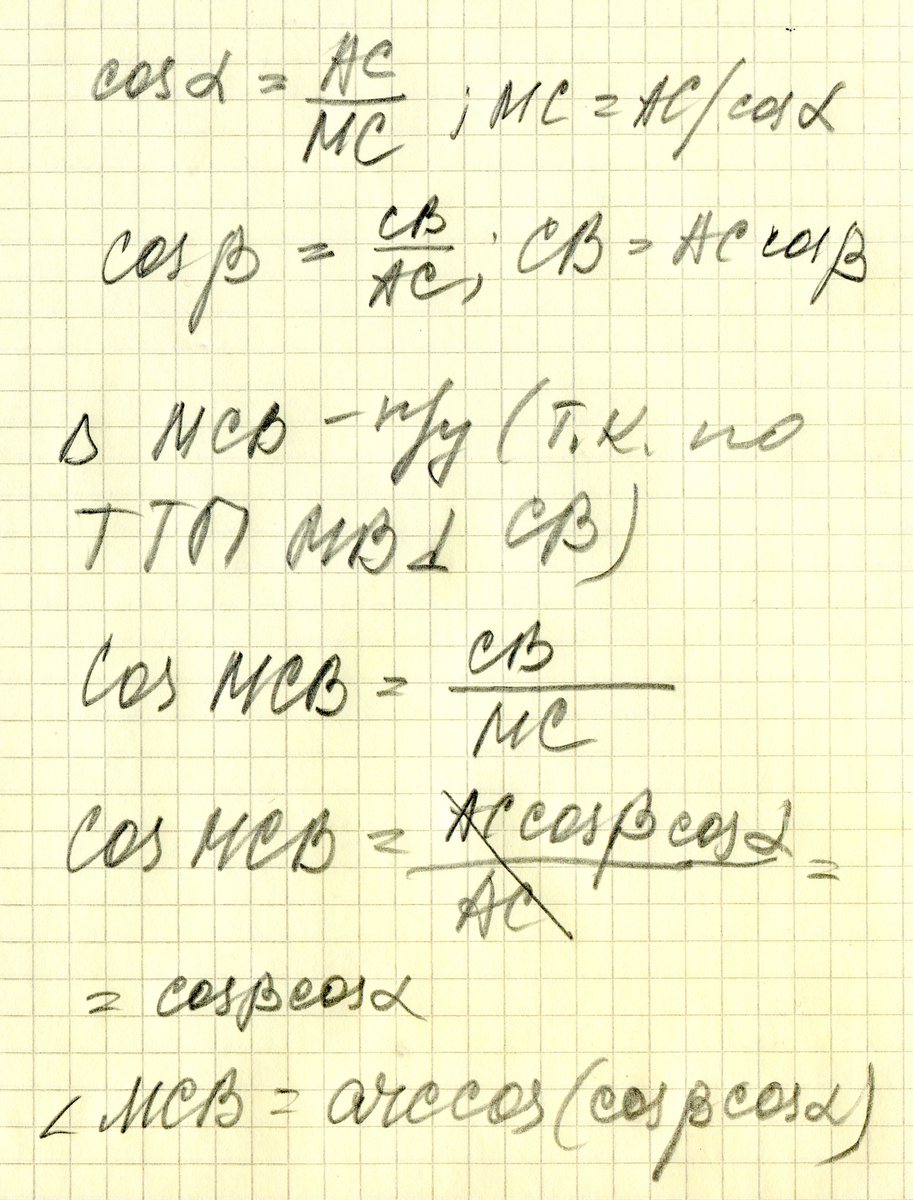 cosα = AC/MC ; MC = AC/cosα
cosβ = CB/AC ; CB = AC cosβ
Δ MCB – п/у (т.к. по
ТТП MB ⊥ CB)
Cos MCB = CB/MC
Cos MCB = AC cosβ cosα/AC =
= cosβ cosα
∠ MCB = arccos(cosβ cosα)